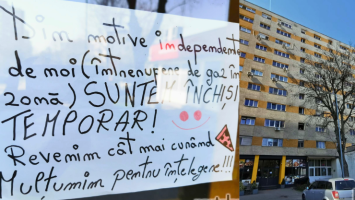 Din motive independente
de noi (întrerupere de gaz în
zonă) SUNTEM ÎNCHIȘI
TEMPORAR!
Revenim cât mai curând
Mulțumim pentru înțelegere!!!